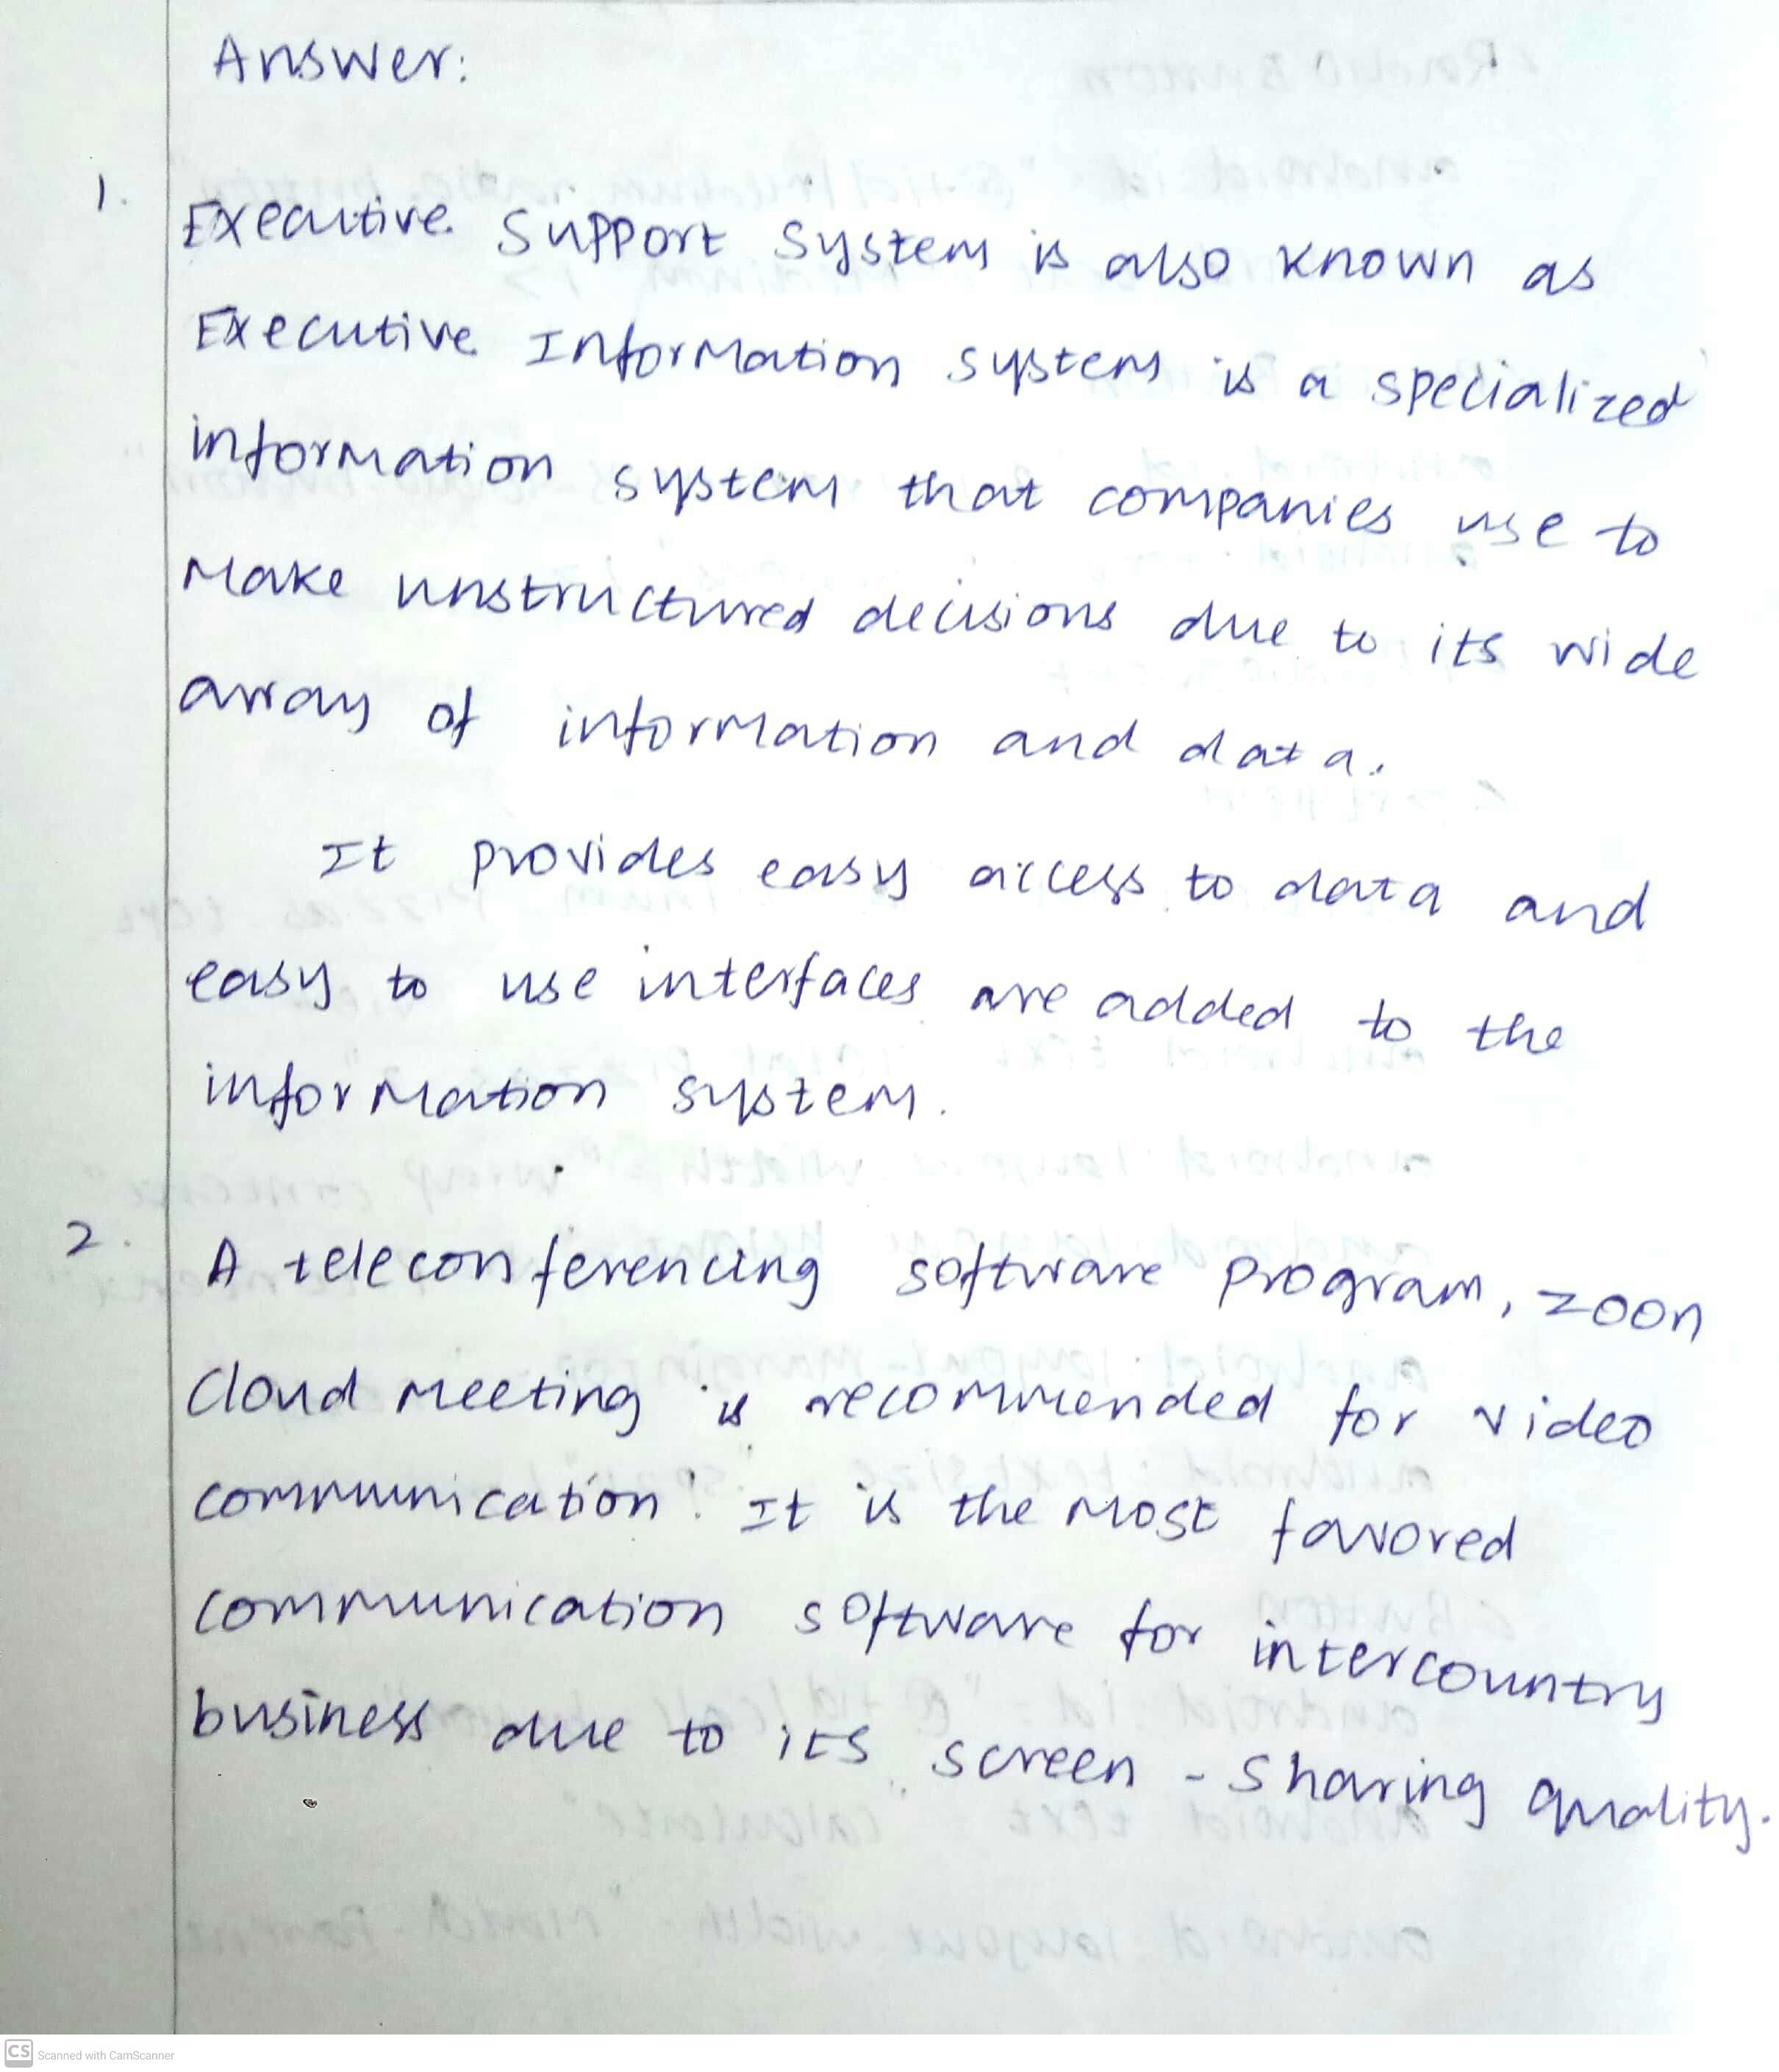 Answer:
1. Executive Support System is also known as
Executive Information system is a specialized
information system that companies use to
Make unstructured decisions due to its wide
array of information and data.
It provides easy access to data and
easy to use interfaces are added to the
information system.
2. A teleconferencing software program, zoon
Cloud Meeting is recommended for video
communication. It is the Most favored
communication software for intercountry
business due to its screen - sharing quality.
CS Scanned with CamScanner